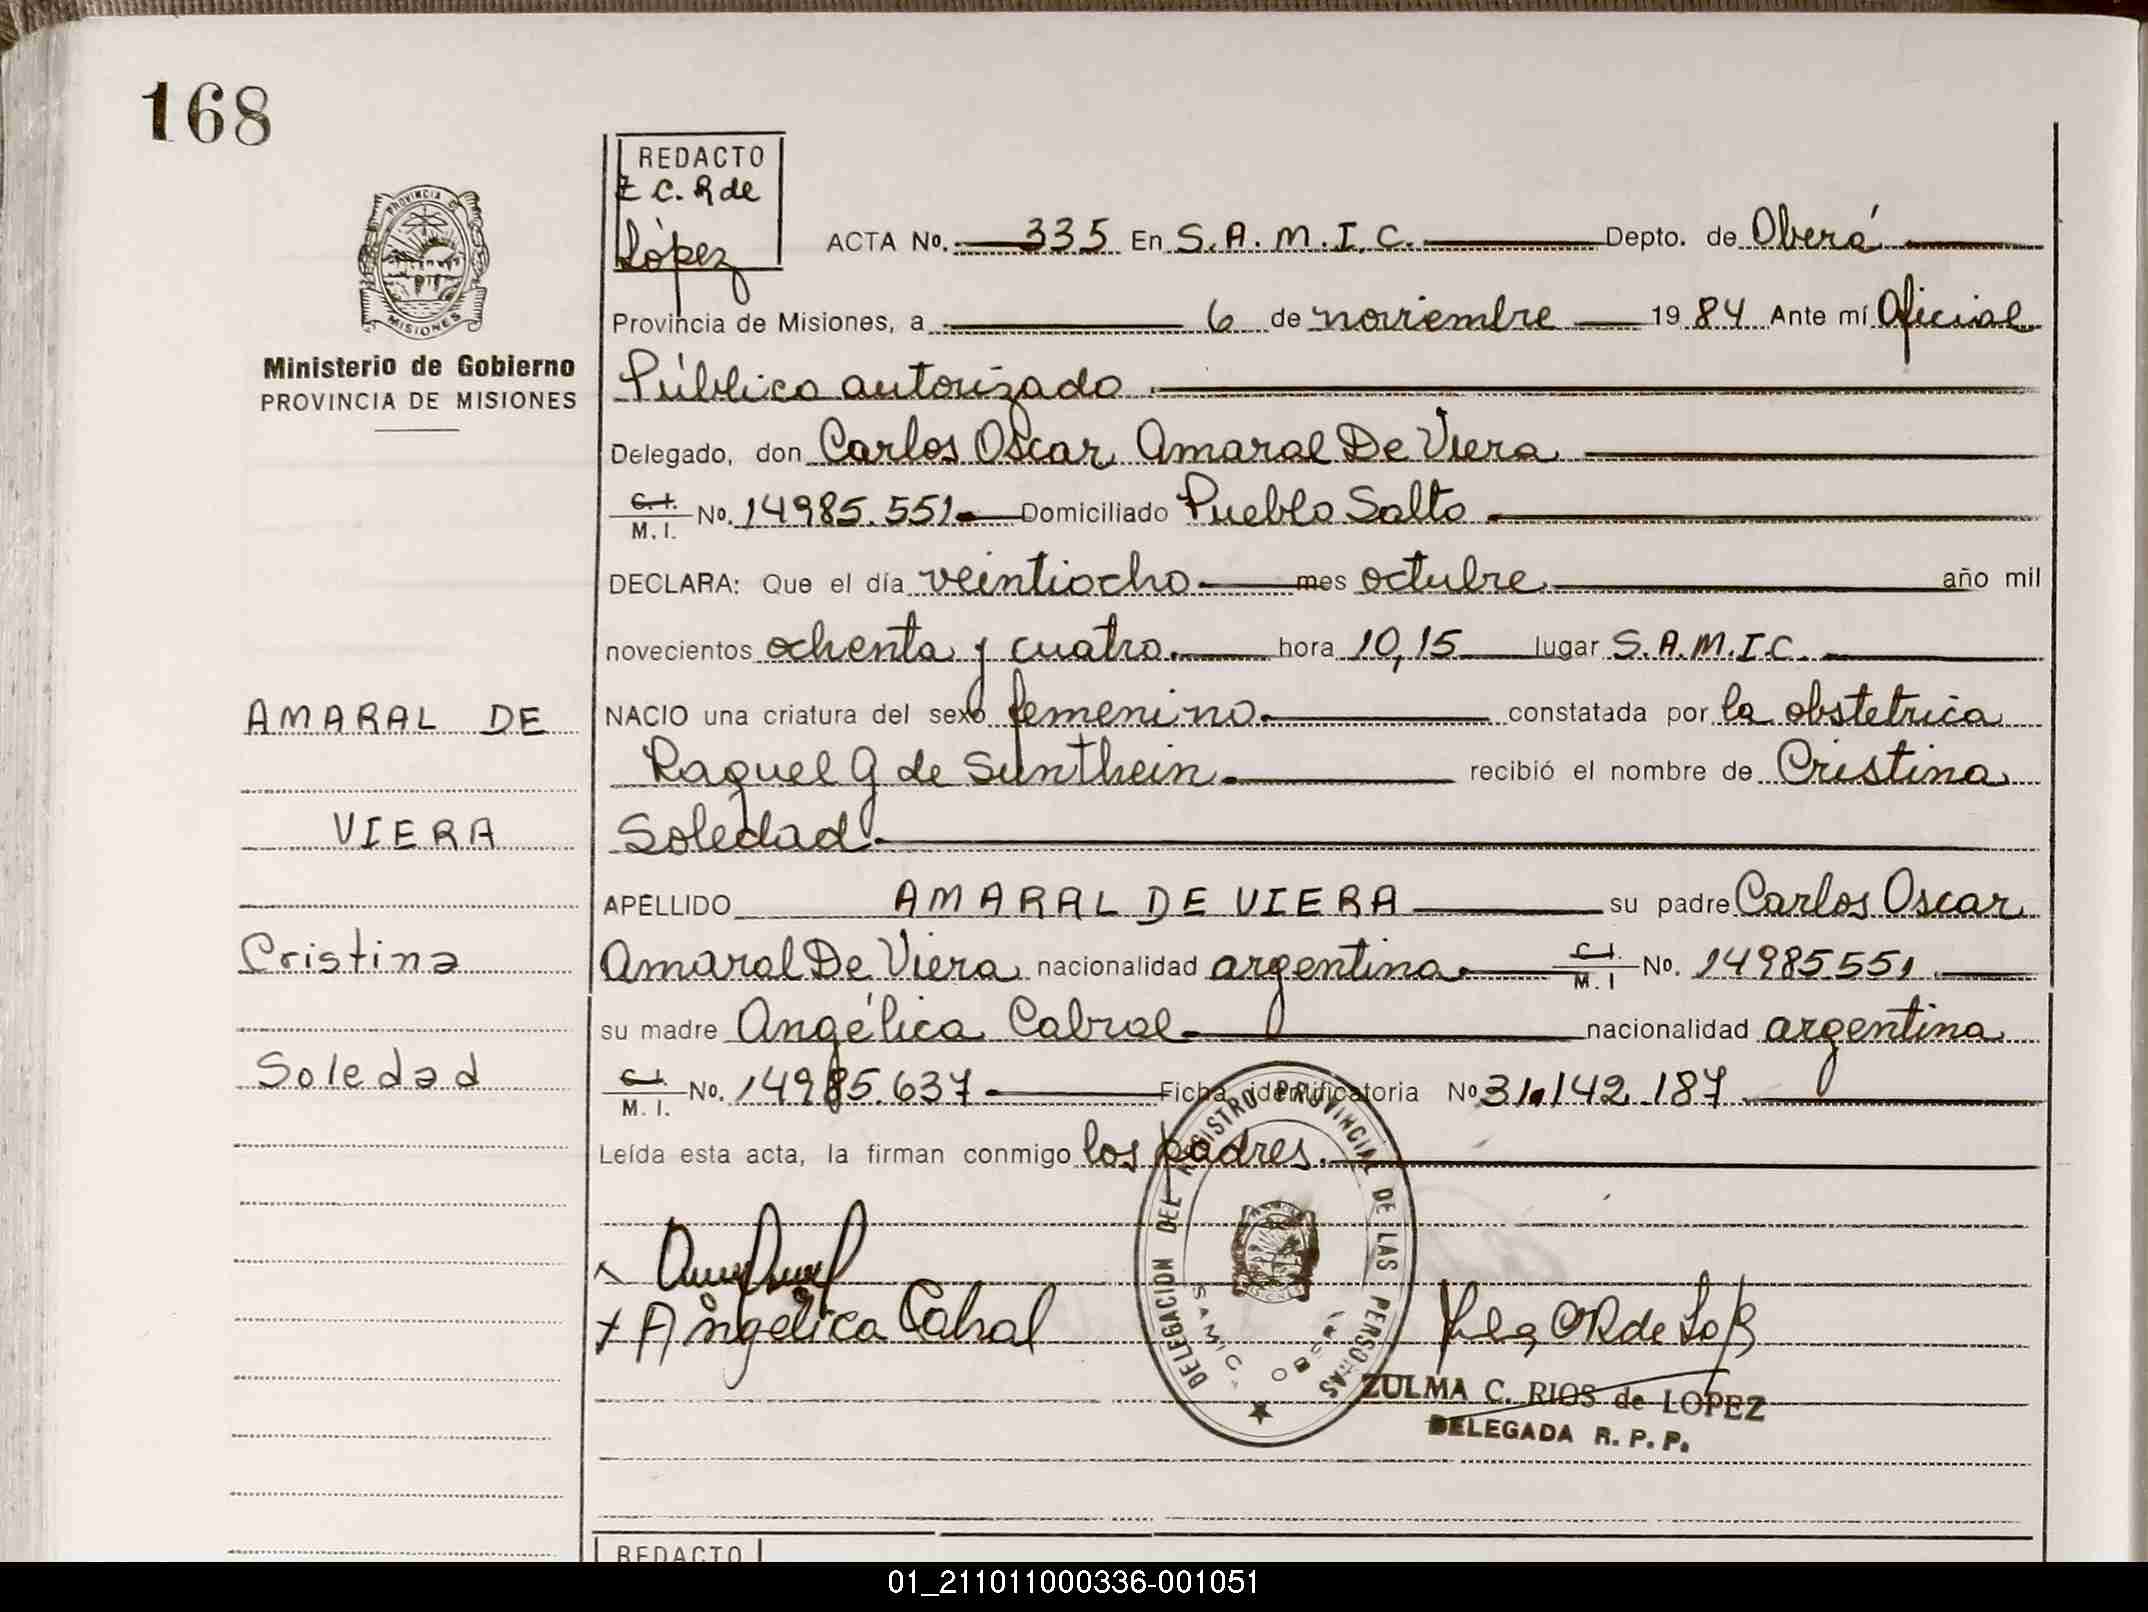 168
REDACTO
Z C. R de
López
PROVINCIA DE
MISIONES
Ministerio de Gobierno
PROVINCIA DE MISIONES
ACTA No. 335 En S.A.M.I.C. Depto. de Oberá
Provincia de Misiones, a 6 de noviembre 1984 Ante mí Oficial
Público autorizado
Delegado, don Carlos Oscar Amaral De Viera
C.I. M.I. No. 14985.551 Domiciliado Pueblo Salto
DECLARA: Que el día veintiocho mes octubre año mil
novecientos ochenta y cuatro hora 10,15 lugar S.A.M.I.C.
NACIO una criatura del sexo femenino constatada por la obstetrica
Raquel G de Sunthein recibió el nombre de Cristina
Soledad
APELLIDO AMARAL DE VIERA su padre Carlos Oscar
Amaral De Viera nacionalidad argentina C.I. M.I No. 14985551
su madre Angélica Cabral nacionalidad argentina
C.I. M.I. No. 14985.637 Ficha identificatoria No 31.142.187
Leída esta acta, la firman conmigo los padres.
AMARAL DE
VIERA
Cristina
Soledad
x Angélica Cabral
DELEGACION DEL REGISTRO PROVINCIAL DE LAS PERSONAS
SAMIC
ZULMA C. RIOS de LOPEZ
DELEGADA R. P. P.
REDACTO
01_211011000336-001051